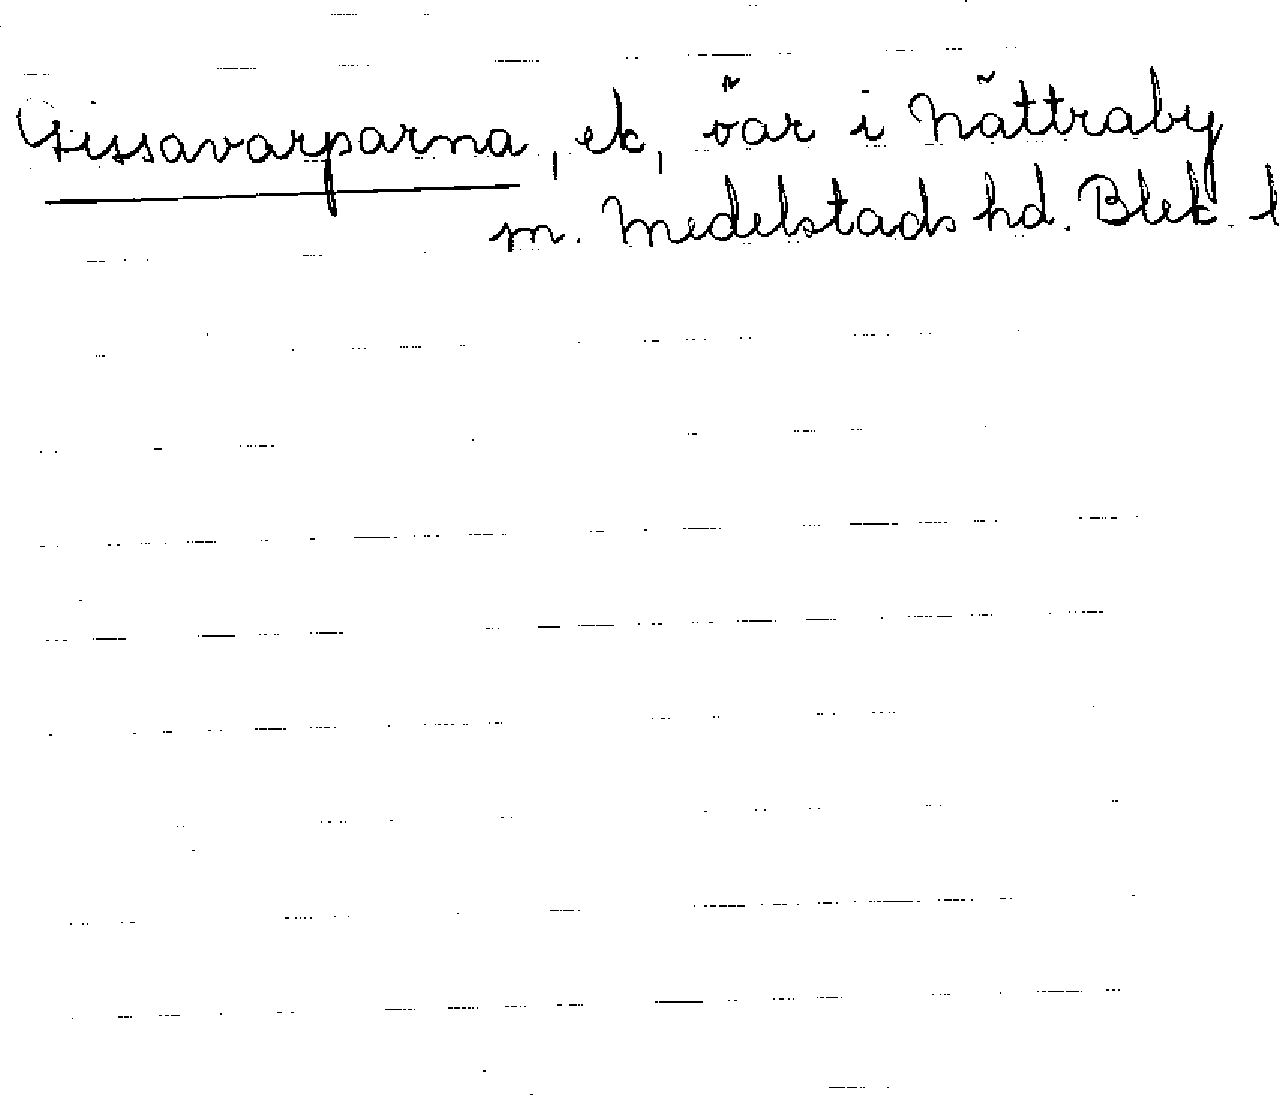 Gissavarparna, ek, öar i Nättraby
m. Medelstads hd. Blek. l